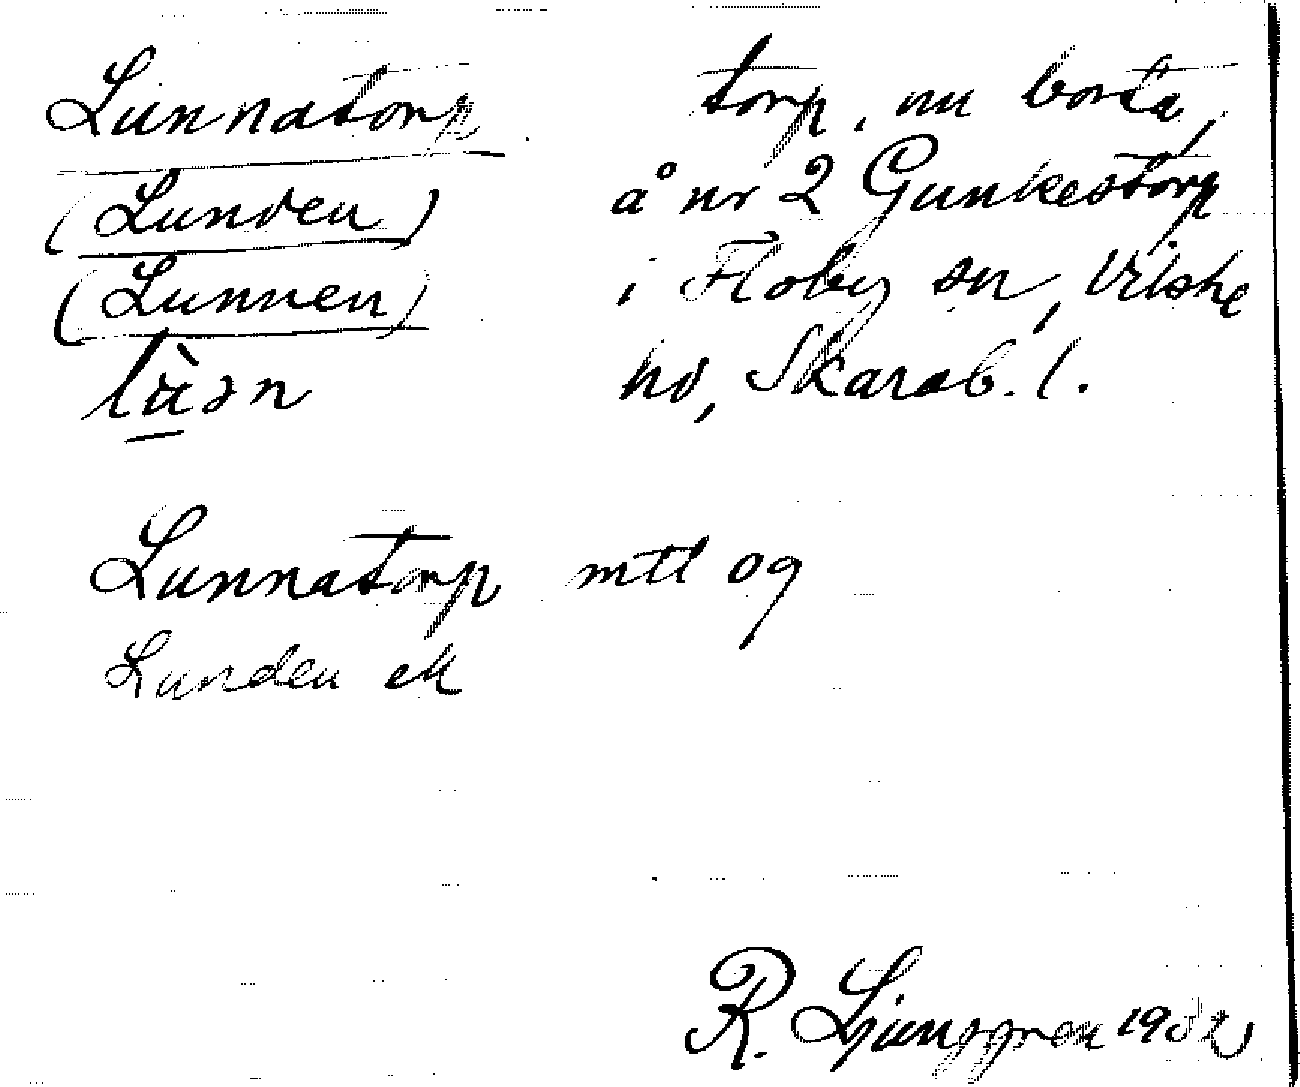 Lunnatorp
(Lunden)
(Lunnen)
torp, nu borta,
å nr 2 Gunkestorp
i Floby sn, Vilske
hd, Skarab. l.
Lunnatorp mtl og
Lunden ek
R. Ljunggren